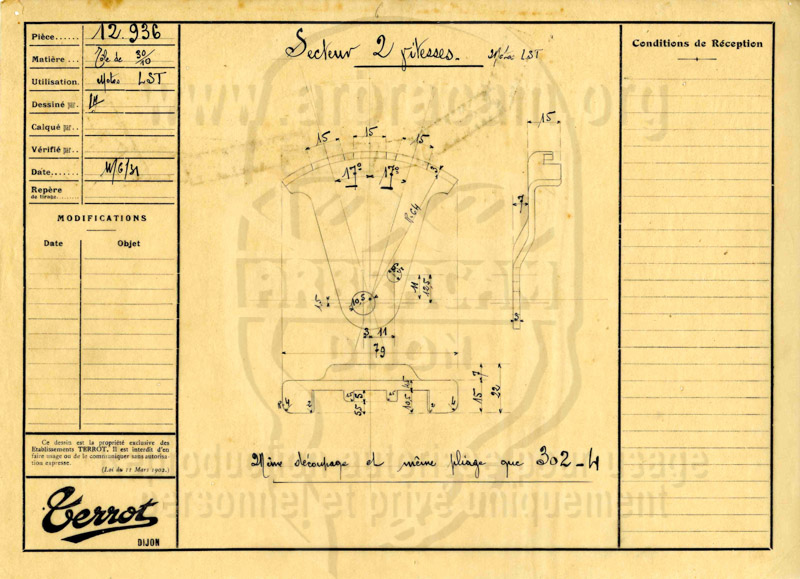 Pièce...... 12.936
Matière... Tôle de 30/10
Utilisation. Motos LST
Dessiné par.
Calqué par..
Vérifié par..
Date....... 11/6/31
Repère
de tirage.
MODIFICATIONS
Date Objet
Ce dessin est la propriété exclusive des
Etablissements TERROT. Il est interdit d'en
faire usage ou de le communiquer sans autorisa-
tion expresse.
(Loi du 11 Mars 1902.)
Terrot
DIJON
Secteur 2 vitesses. LST
15 15 15
17° - 17°
R.64
10,5
11
12,5
3 11
79
15
7
3
15 7
22
5,5 5
10,5
Même découpage et même pliage que 302-4
Conditions de Réception
www.arbracam.org
ARBRACAM
DIJON
Reproduction autorisée pour usage
personnel et privé uniquement